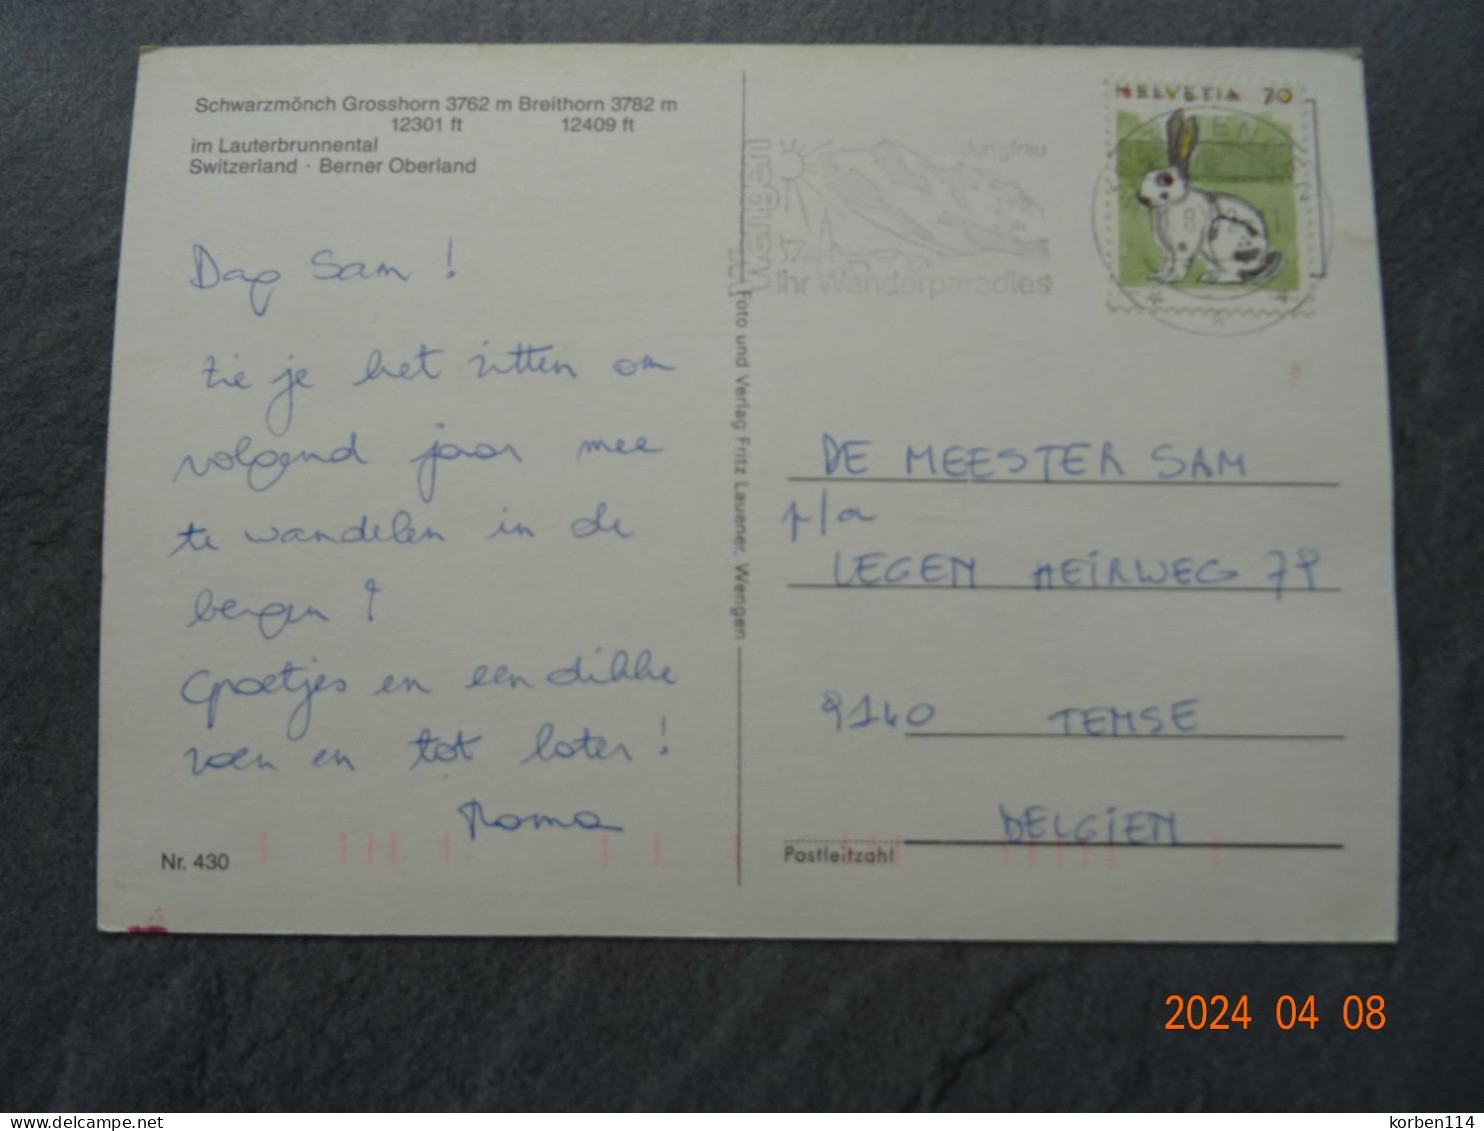 Schwarzmönch Grosshorn 3762 m Breithorn 3782 m
12301 ft 12409 ft
im Lauterbrunnental
Switzerland · Berner Oberland
Dag Sam !
Zie je het zitten om
volgend jaar mee
te wandelen in de
bergen ?
Groetjes en een dikke
zoen en tot later !
Nr. 430
Foto und Verlag Fritz Lauener, Wengen
Wengen
Jungfrau
Ihr Wanderparadies
HELVETIA 70
DE MEESTER SAM
p/a
LEGEN HEIRWEG 79
9140 TEMSE
BELGIEN
Postleitzahl
2024 04 08
www.delcampe.net
korben114